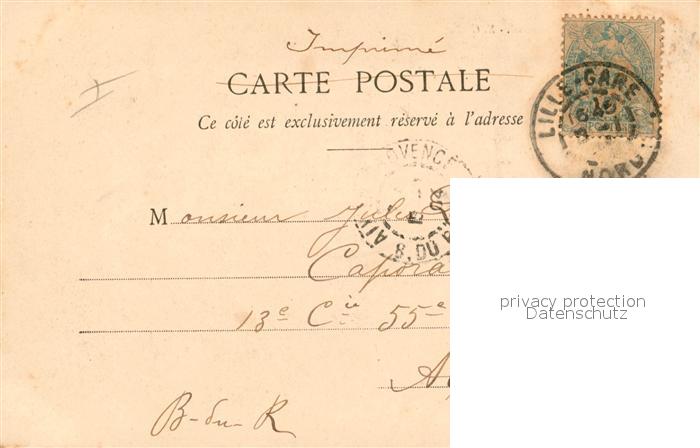 Imprimé
CARTE POSTALE
Ce côté est exclusivement réservé à l'adresse
LILLE-GARE
NORD
Monsieur Jules
Capora
13e Cie 55e
B-du-R
privacy protection
Datenschutz